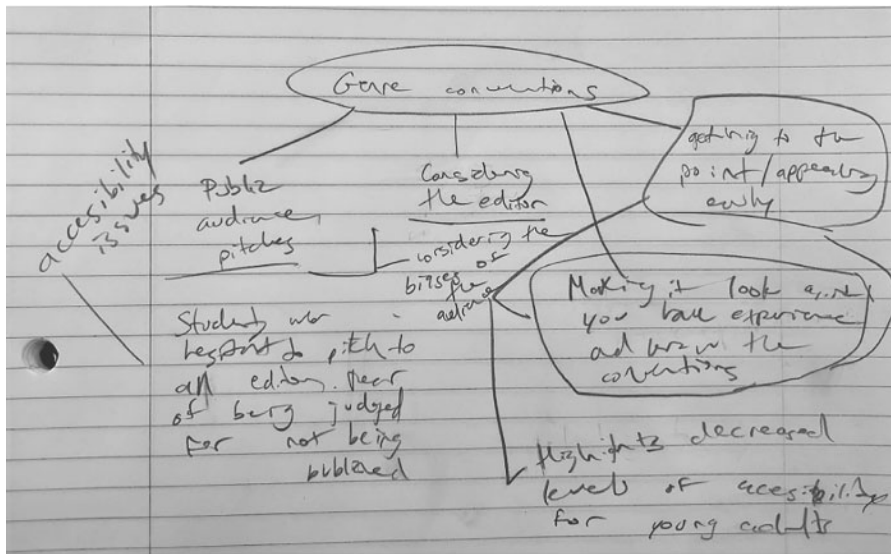 Genre conventions
accesibility
issues
Public
audience
pitches
Considering
the editor
considering the
biases of
the
audience
getting to the
point/appearing
early
Making it look
you have experience
and the
conventions
Students
hesitant to pitch to
an editor, fear
of being judged
for not being
published
Highlights decreased
level of accesibility
for young adults